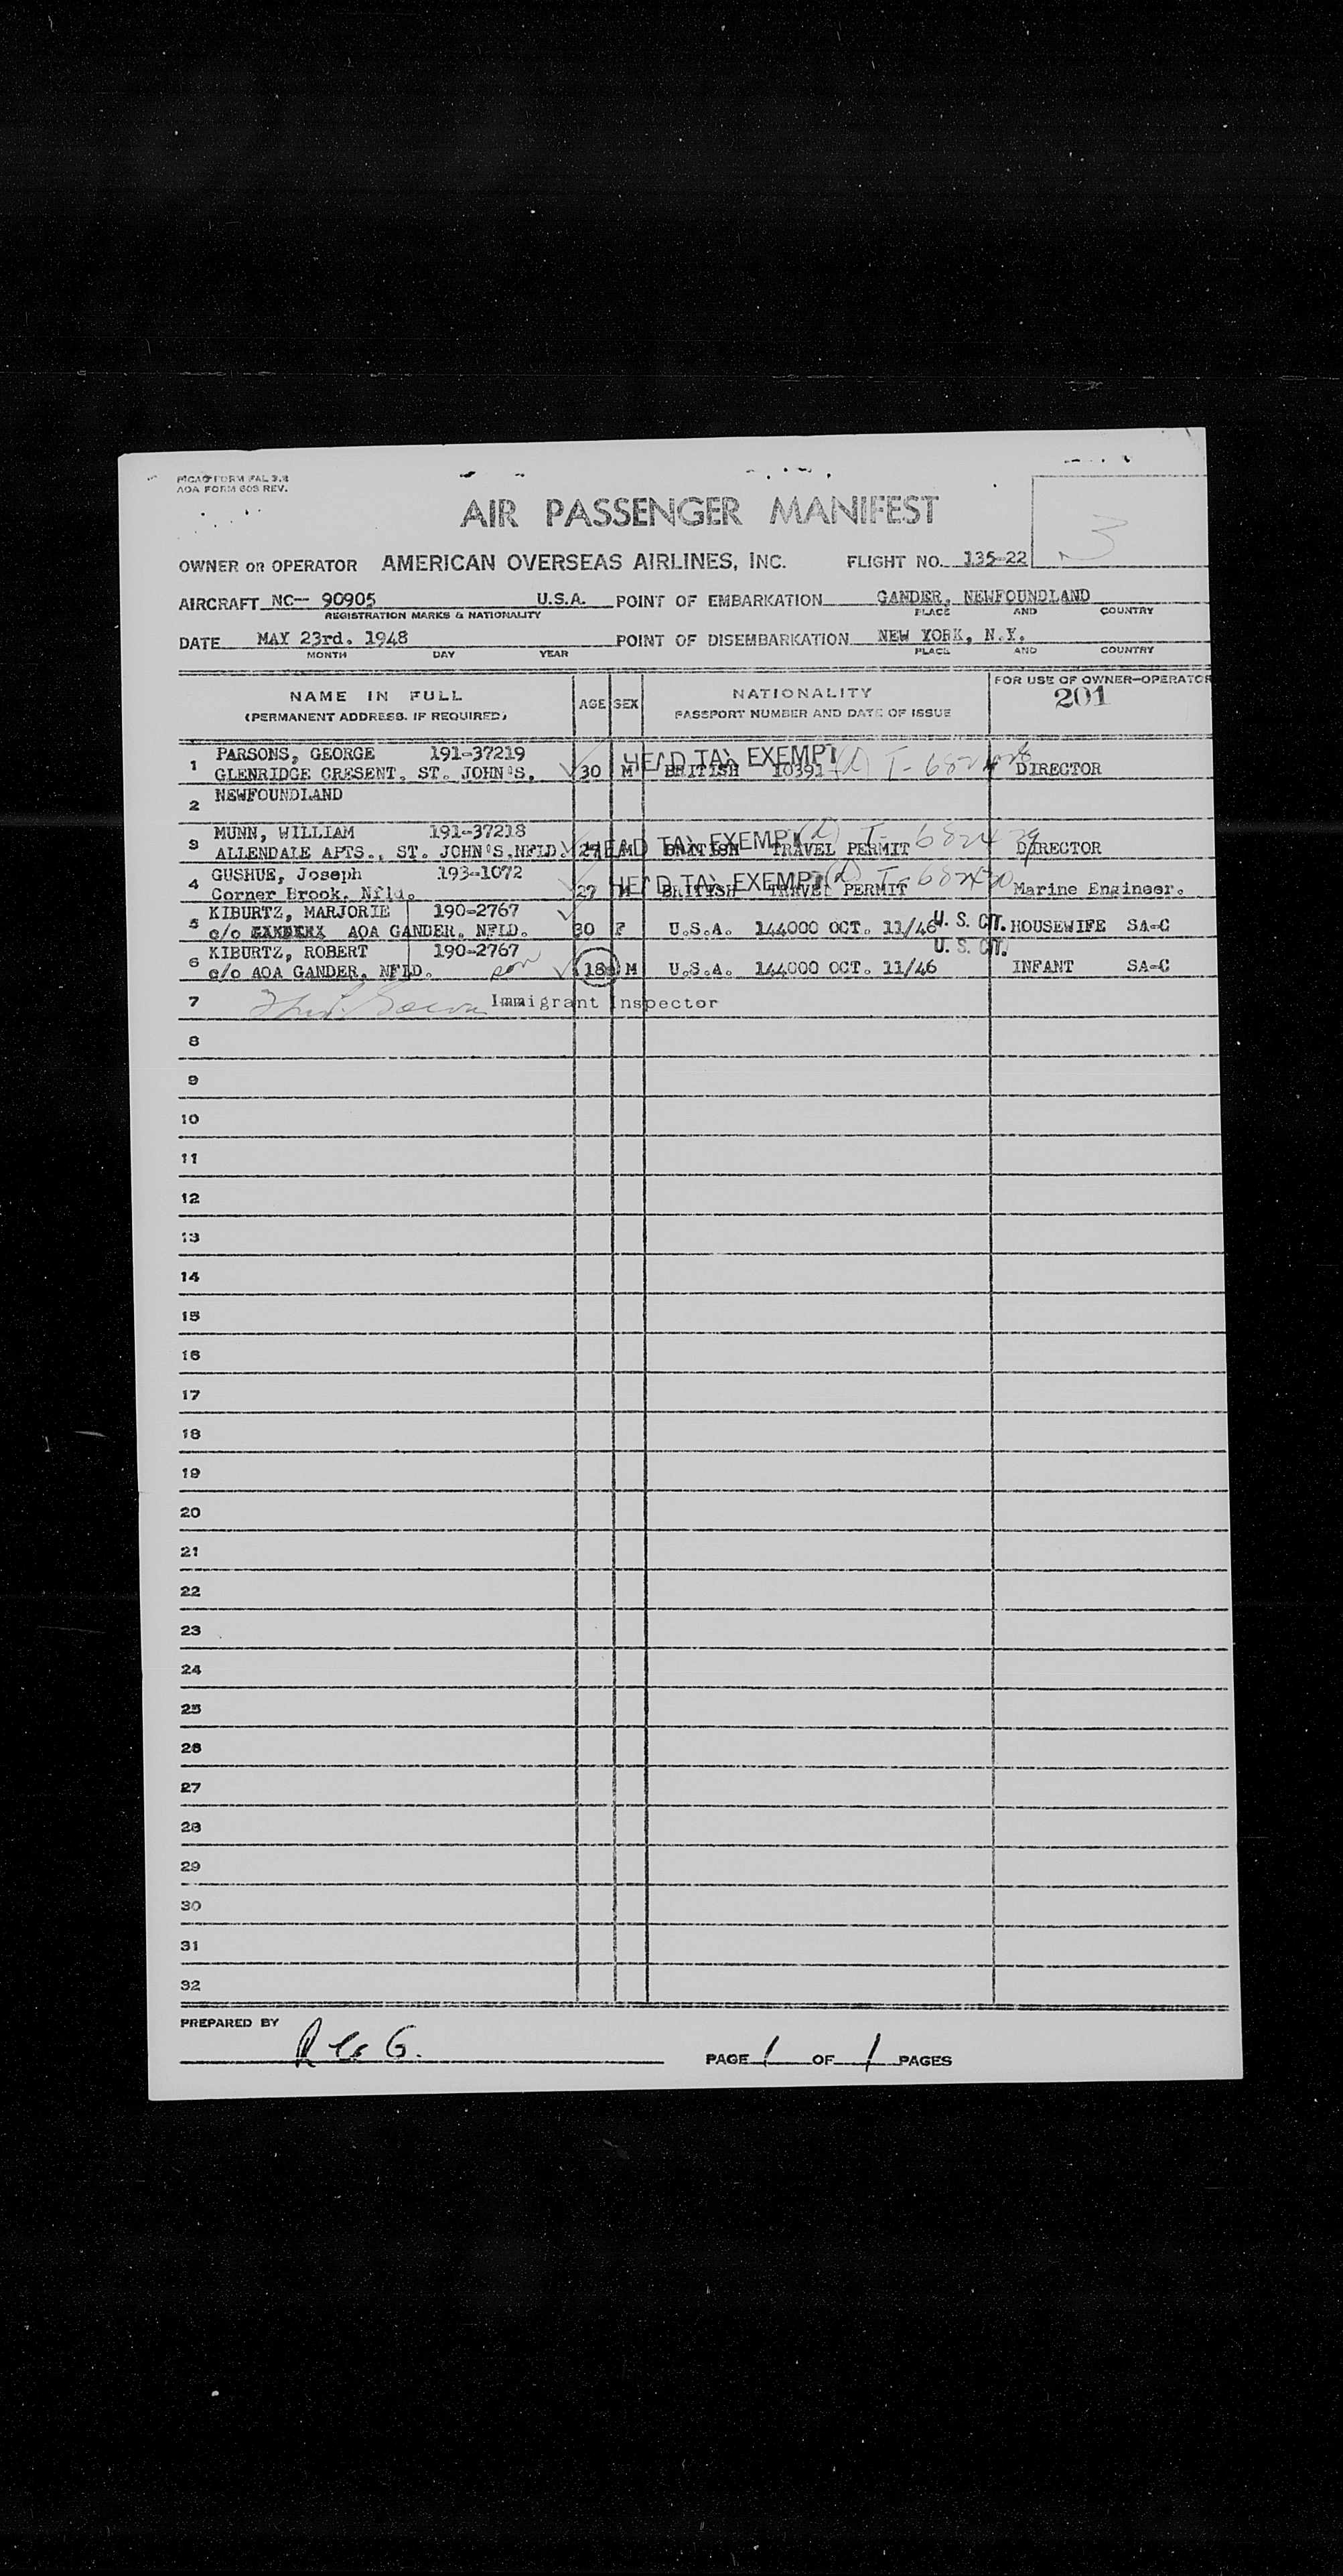 PICAO FORM FAL 3.2
AOA FORM 608 REV.
AIR PASSENGER MANIFEST
3
OWNER OR OPERATOR AMERICAN OVERSEAS AIRLINES, INC. FLIGHT NO. 135-22
AIRCRAFT NC-- 90905 U.S.A. POINT OF EMBARKATION GANDER, NEWFOUNDLAND
REGISTRATION MARKS & NATIONALITY PLACE AND COUNTRY
DATE MAY 23rd. 1948 POINT OF DISEMBARKATION NEW YORK, N.Y.
MONTH DAY YEAR PLACE AND COUNTRY
NAME IN FULL
(PERMANENT ADDRESS, IF REQUIRED)
AGE SEX
NATIONALITY
PASSPORT NUMBER AND DATE OF ISSUE
FOR USE OF OWNER-OPERATOR
201
1 PARSONS, GEORGE 191-37219 HEAD TAX EXEMPT
GLENRIDGE CRESENT, ST. JOHN'S, 30 M BRITISH 10391 DIRECTOR
2 NEWFOUNDLAND
3 MUNN, WILLIAM 191-37218 HEAD TAX EXEMPT T-682429
ALLENDALE APTS., ST. JOHN'S,NFLD. M BRITISH TRAVEL PERMIT DIRECTOR
4 GUSHUE, Joseph 193-1072 HEAD TAX EXEMPT T-682430
Corner Brook, Nfld. 27 M BRITISH TRAVEL PERMIT Marine Engineer.
5 KIBURTZ, MARJORIE 190-2767 U. S. CIT.
c/o AOA GANDER, NFLD. 30 F U.S.A. 144000 OCT. 11/46 HOUSEWIFE SA-C
6 KIBURTZ, ROBERT 190-2767 son U. S. CIT.
c/o AOA GANDER, NFLD. 18 M U.S.A. 144000 OCT. 11/46 INFANT SA-C
7 Immigrant Inspector
8
9
10
11
12
13
14
15
16
17
18
19
20
21
22
23
24
25
26
27
28
29
30
31
32
PREPARED BY
PAGE 1 OF 1 PAGES